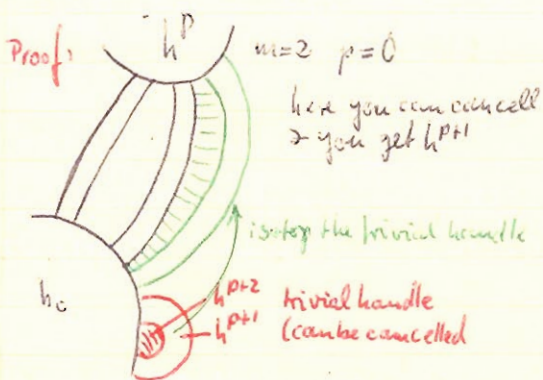 Proof:
h^p
m=2 p=0
here you can cancell
& you get h^{p+1}
isotop the trivial handle
h_0
h^{p+2}
h^{p+1}
trivial handle
(can be cancelled